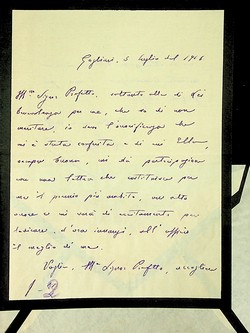 Cagliari, 5 luglio del 1916
Ill.mo Signor Prefetto, soltanto alla di Lei
benevolenza per me, che so di non
meritare, io devo l'onorificenza che
mi è stata conferita e di cui Ella,
sempre buona, mi dà partecipazione
con una lettera che costituisce per
me il premio più ambito, un alto
onore e mi servirà di incitamento per
dedicare, d'ora innanzi, all'ufficio
il meglio di me.
Voglia, Ill.mo Signor Prefetto, accogliere
1-2